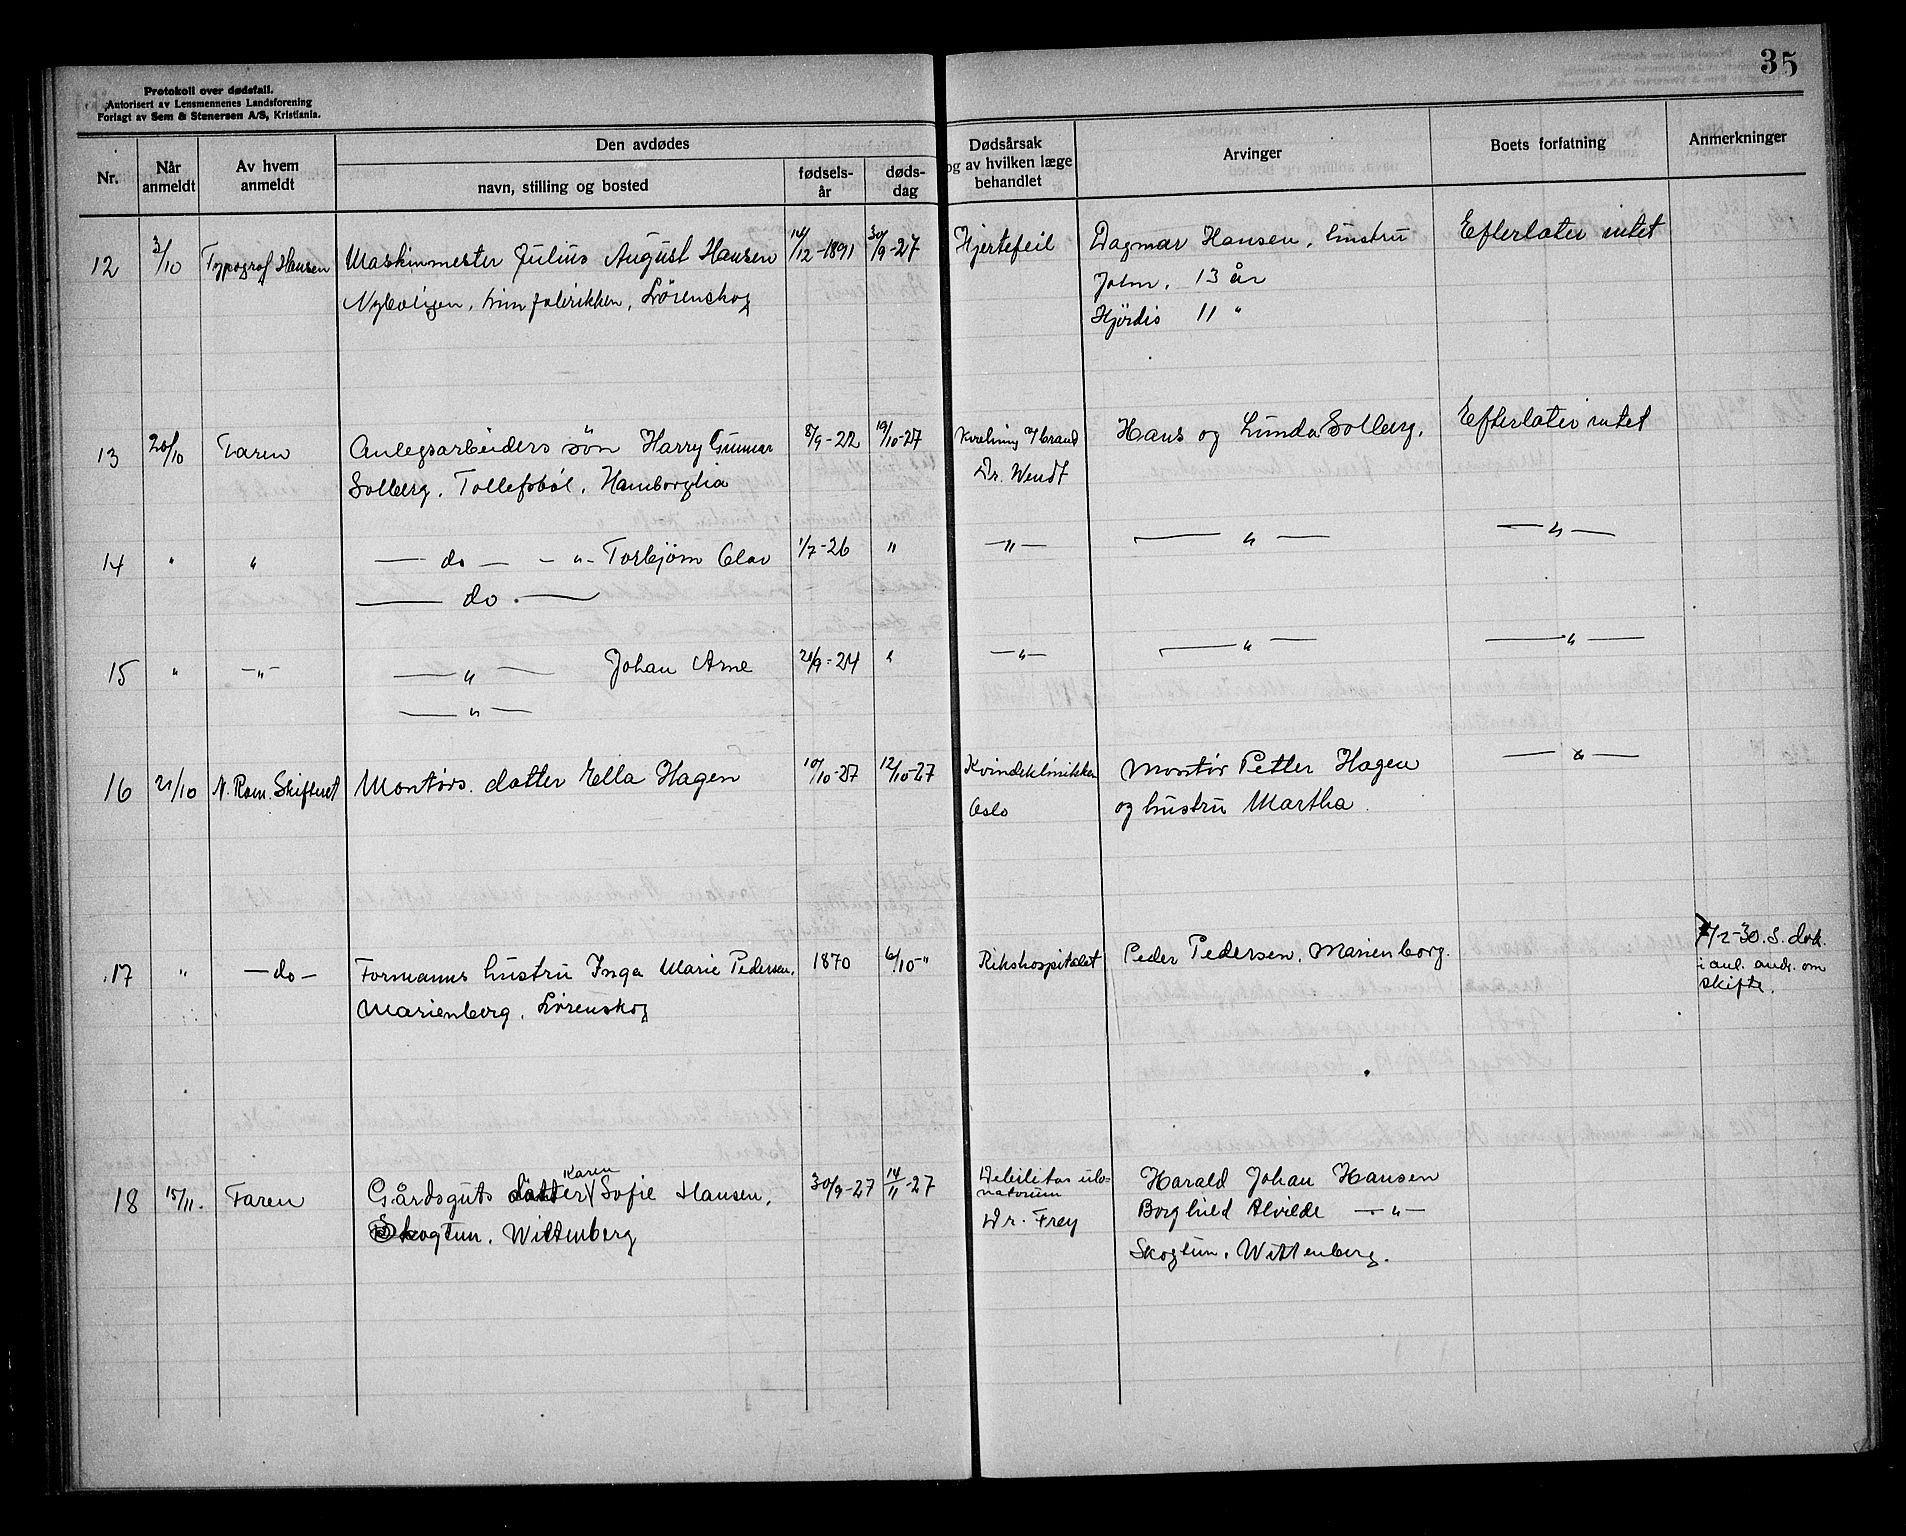 35
Protokoll over dødsfall.
Autorisert av Lensmennenes Landsforening
Forlagt av Sem & Stenersen A/S, Kristiania.
Nr.
Når anmeldt
Av hvem anmeldt
Den avdødes
navn, stilling og bosted
fødsels-
år
døds-
dag
Dødsårsak
og av hvilken læge
behandlet
Arvinger
Boets forfatning
Anmerkninger
12 3/10 Typograf Hansen Maskinmester Julius August Hansen 14/12-1891 30/9-27 Hjertefeil Dagmar Hansen, hustru Efterlater intet
Nyboligen, Limfabrikken, Lørenskog John, 13 år
Hjørdis 11 "
13 20/10 Faren Anlegsarbeiders søn Harry Gunnar 8/9-22 19/10-27 Kvelning v/ brand Hans og Lunda Solberg. Efterlater intet
Solberg, Tollefsbøl, Hamborglia Dr. Wendt
14 " " — do — - " - Torbjørn Olav 1/7-26 " —"— — " — — " —
— do. —
15 " —"— — " — Johan Arne 21/9-24 " —"— — " — — " —
— " —
16 21/10 N. Rom. Skifteret Montørs datter Ella Hagen 10/10-27 12/10-27 Kvindeklinikken Montør Petter Hagen — " —
Oslo og hustru Martha.
17 " —do— Formanns hustru Inga Marie Pedersen, 1870 6/10-" Rikshospitalet Peder Pedersen, Marienborg. /2-30. S. dok.
i anl. andr. om
skifte.
Marienborg, Lørenskog
18 15/11. Faren Gårdsguts datter Karen Sofie Hansen, 30/9-27 14/11-27 Debilitas Harald Johan Hansen
natorum Borghild Alvilde —"—
Skogtun, Wittenberg Dr. Frey
Skogtun, Wittenberg.